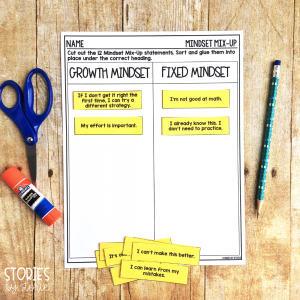 NAME MINDSET MIX-UP
Cut out the 12 Mindset Mix-Up statements. Sort and glue them into
place under the correct heading.
GROWTH MINDSET FIXED MINDSET
If I don't get it right the
first time, I can try a
different strategy.
I'm not good at math.
My effort is important.
I already know this. I
don't need to practice.
It's
I can't make this better.
I can learn from my
mistakes.
STORIES